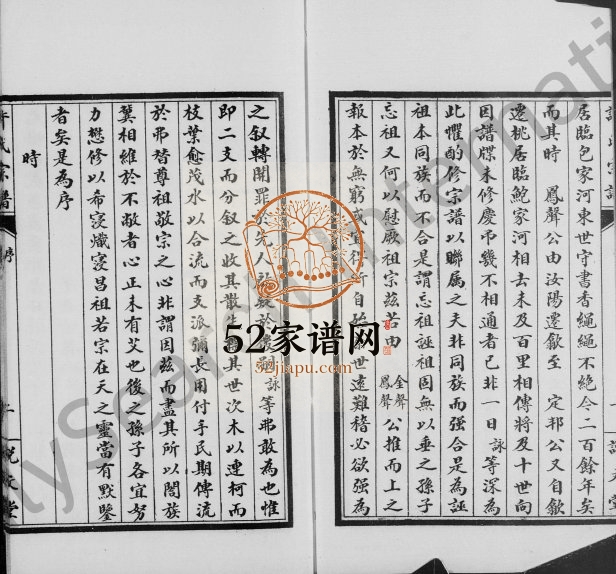 居臨包家河東世守書香繩繩不絕今二百餘年矣
而其時 鳳聲公由汝陽遷歙至 定邦公又自歙
遷桃居臨鮑家河相去未及百里相傳將及十世向
因譜牒未修慶弔幾不相通者已非一日詠等深為
此懼酌修宗譜以聯屬之夫非同族而強合是為誣
祖本同族而不合是謂忘祖誣祖固無以垂之孫子
忘祖又何以慰厥祖宗茲若由 金聲 鳳聲 公推而上之
報本於無窮 自 世遠難稽必欲強為
之叙轉開罪於先人 於 詠等弗敢為也惟
即二支而分叙之收其散 其世次木以連柯而
枝葉愈茂水以合流而支派彌長用付手民期傳流
於弗替尊祖敬宗之心非謂因茲而盡其所以閤族
冀相維於不敝者心正未有艾也後之孫子各宜努
力懋修以希寖熾寖昌祖若宗在天之靈當有默鑒
者矣是為序
時
許氏宗譜
序
52家谱网
52jiapu.com